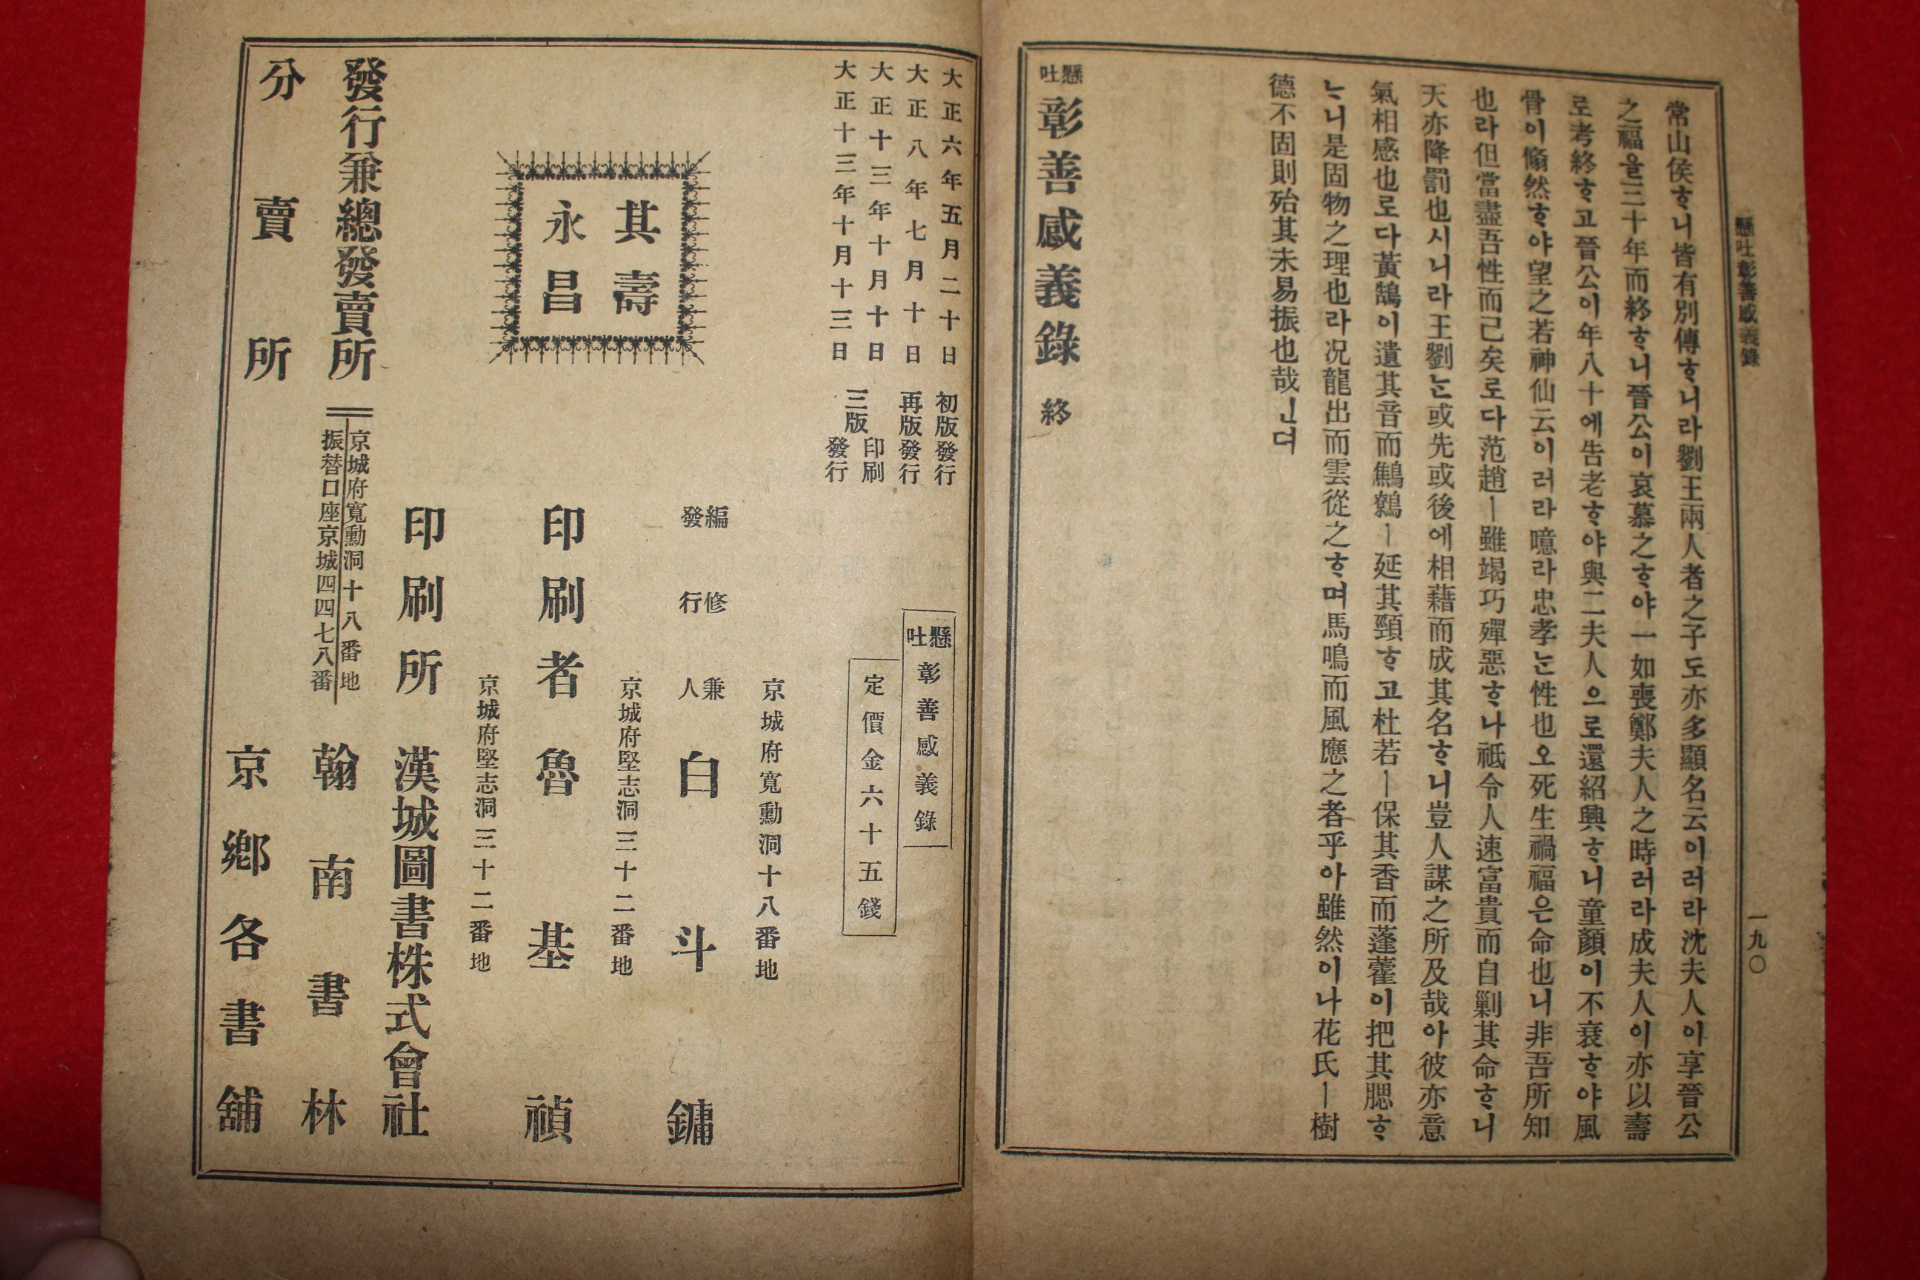 懸吐彰善感義錄
一九〇
常山侯ᄒᆞ니皆有別傳ᄒᆞ니라劉王兩人者之子도亦多顯名云이러라沈夫人이享晉公
之福을三十年而終ᄒᆞ니晉公이哀慕之ᄒᆞ야一如喪鄭夫人之時러라成夫人이亦以壽
로考終ᄒᆞ고晉公이年八十에告老ᄒᆞ야與二夫人으로還紹興ᄒᆞ니童顏이不衰ᄒᆞ야風
骨이翛然ᄒᆞ야望之若神仙云이러라噫라忠孝ᄂᆞᆫ性也오死生禍福은命也니非吾所知
也라但當盡吾性而已矣로다范趙ㅣ雖竭巧殫惡ᄒᆞ나祇令人速富貴而自剿其命ᄒᆞ니
天亦降罰也시니라王劉ᄂᆞᆫ或先或後에相藉而成其名ᄒᆞ니豈人謀之所及哉아彼亦意
氣相感也로다黃鵠이遺其音而鷦鷯ㅣ延其頸ᄒᆞ고杜若ㅣ保其香而蓬藿이把其腮ᄒᆞ
ᄂᆞ니是固物之理也라况龍出而雲從之ᄒᆞ며馬鳴而風應之者乎아雖然이나花氏ㅣ樹
德不固則殆其未易振也哉ᅟᅵᆫ뎌
懸吐彰善感義錄 終
大正六年五月二十日 初版發行
大正八年七月十日 再版發行
大正十三年十月十日 三版印刷
大正十三年十月十三日 三版發行
懸吐彰善感義錄
定價金六十五錢
其壽
永昌
京城府寬勳洞十八番地
編修兼
發行人 白斗鏞
京城府堅志洞三十二番地
印刷者 魯基禎
京城府堅志洞三十二番地
印刷所 漢城圖書株式會社
發行兼總發賣所
京城府寬勳洞十八番地
振替口座京城四四七八番
翰南書林
分賣所 京鄉各書舖